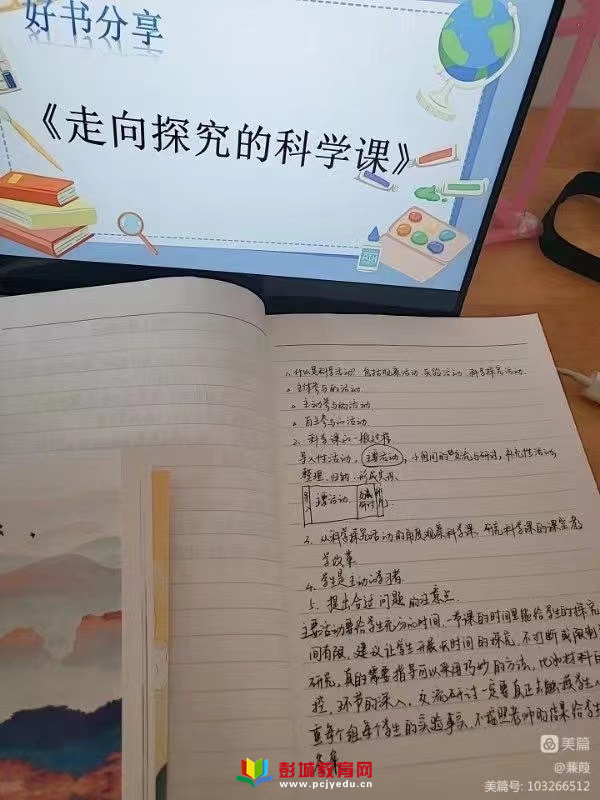 好书分享
《走向探究的科学课》
1、什么是科学活动? 包括观察活动 实验活动 科学探究活动
。主体参与的活动
。主动参与的活动
。自主参与的活动
2、科学课的一般过程
导入性活动,主要活动,小组间的交流与研讨,补充性活动,
整理、归纳、形成共识。
主要活动 交流研讨
3、从科学探究活动的角度观察科学课,研究科学课的课堂教
学改革
4、学生是主动的学习者
5、提出合适问题的注意点
主要活动要给学生充分的时间,一节课的时间里能给学生的探究
间有限,建议让学生开展长时间的探究,不打断或限制
研究,真的需要指导可以采用巧妙的方法,比如材料
控,环节的深入,交流研讨一定要真正去触摸学生
重每个组每个学生的实验事实,不按照老师的结果给学生
答案
美篇
@蒹葭
美篇号: 103266512
彭城教育网
www.pcjyedu.cn